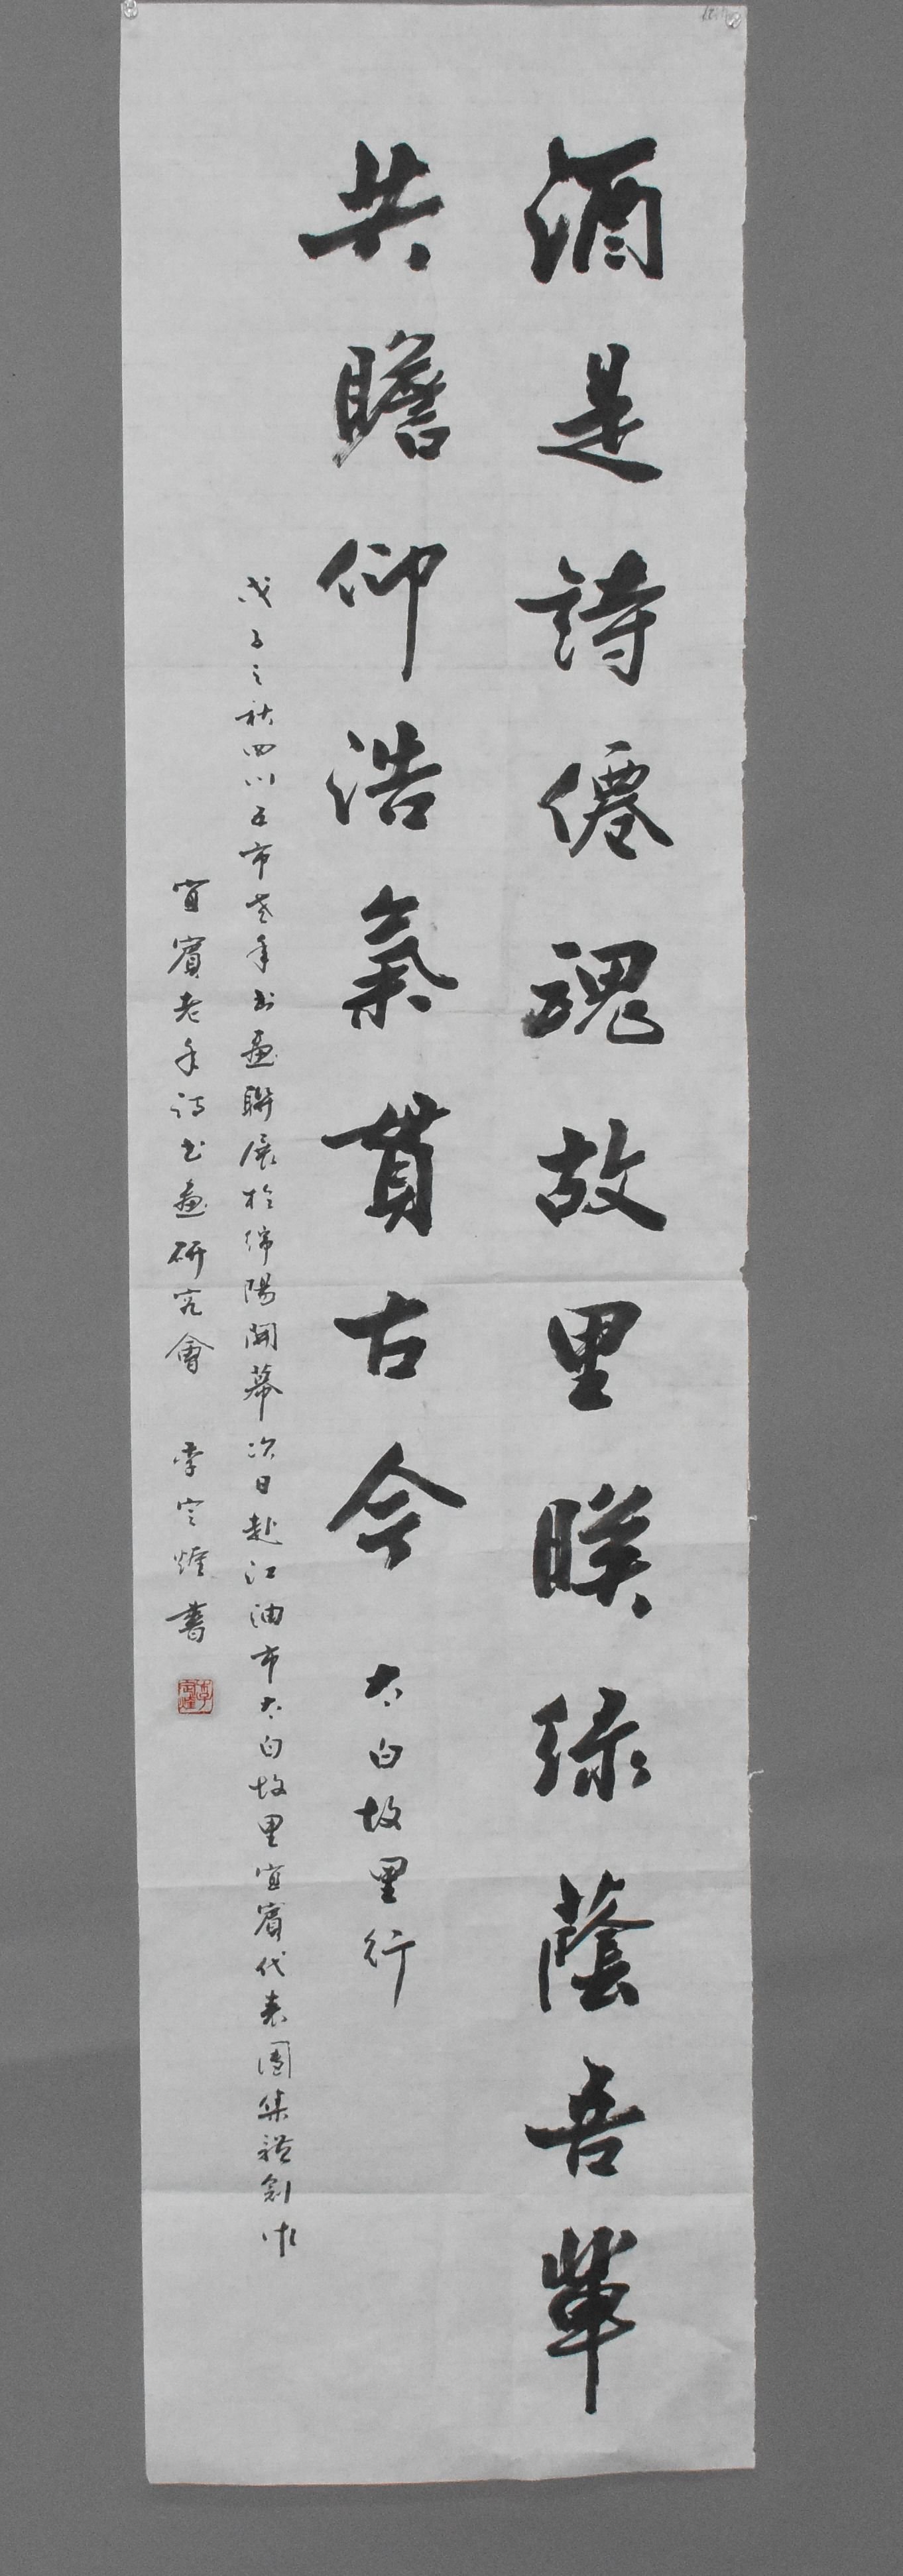 酒是詩僊魂故里睽绿蔭吾輩
共瞻仰浩氣貫古今 太白故里行
戊子之秋四川五市老年书畫聯展於绵陽開幕次日赴江油市太白故里宜賓代表團集體創作
宜賓老年诗书畫研究會 李定煃書